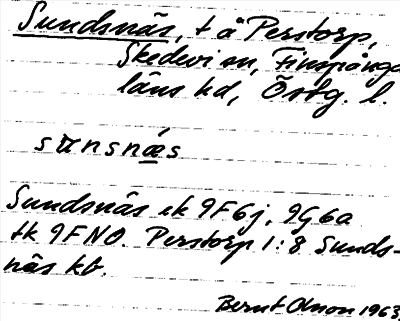 Sundsnäs, t å Perstorp,
Skedevi sn, Finspånga
läns hd, Östg. l.
sunsnæs
Sundsnäs ek 9F6j, 9G6a
tk 9FNO. Perstorp 1:8 Sunds-
näs kb.
Bernt Olson 1963